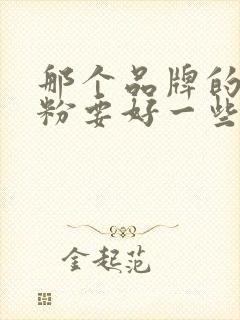 那个品牌的
粉要好一些
金起范